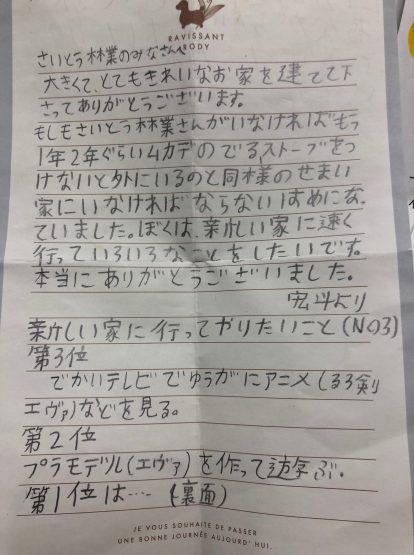 RAVISSANT
BODY
さいとう林業のみなさんへ
大きくて、とてもきれいなお家を建てて下
さってありがとうございます。
もしもさいとう林業さんがいなければもう
1年2年ぐらいムカデのでるストーブをつ
けないと外にいるのと同様のせまい
家にいなければならないはめにな
ていました。ぼくは、新しい家に速く
行っていろいろなことをしたいです。
本当にありがとうございました。
より
新しい家に行ってやりたいこと(No3)
第3位
でかいテレビでゆうがにアニメ(るろ剣
エヴァ)などを見る。
第2位
プラモデル(エヴァ)を作って遊ぶ。
第1位は…… (裏面)
JE VOUS SOUHAITE DE PASSER
UNE BONNE JOURNÉE AUJOURD' HUI.